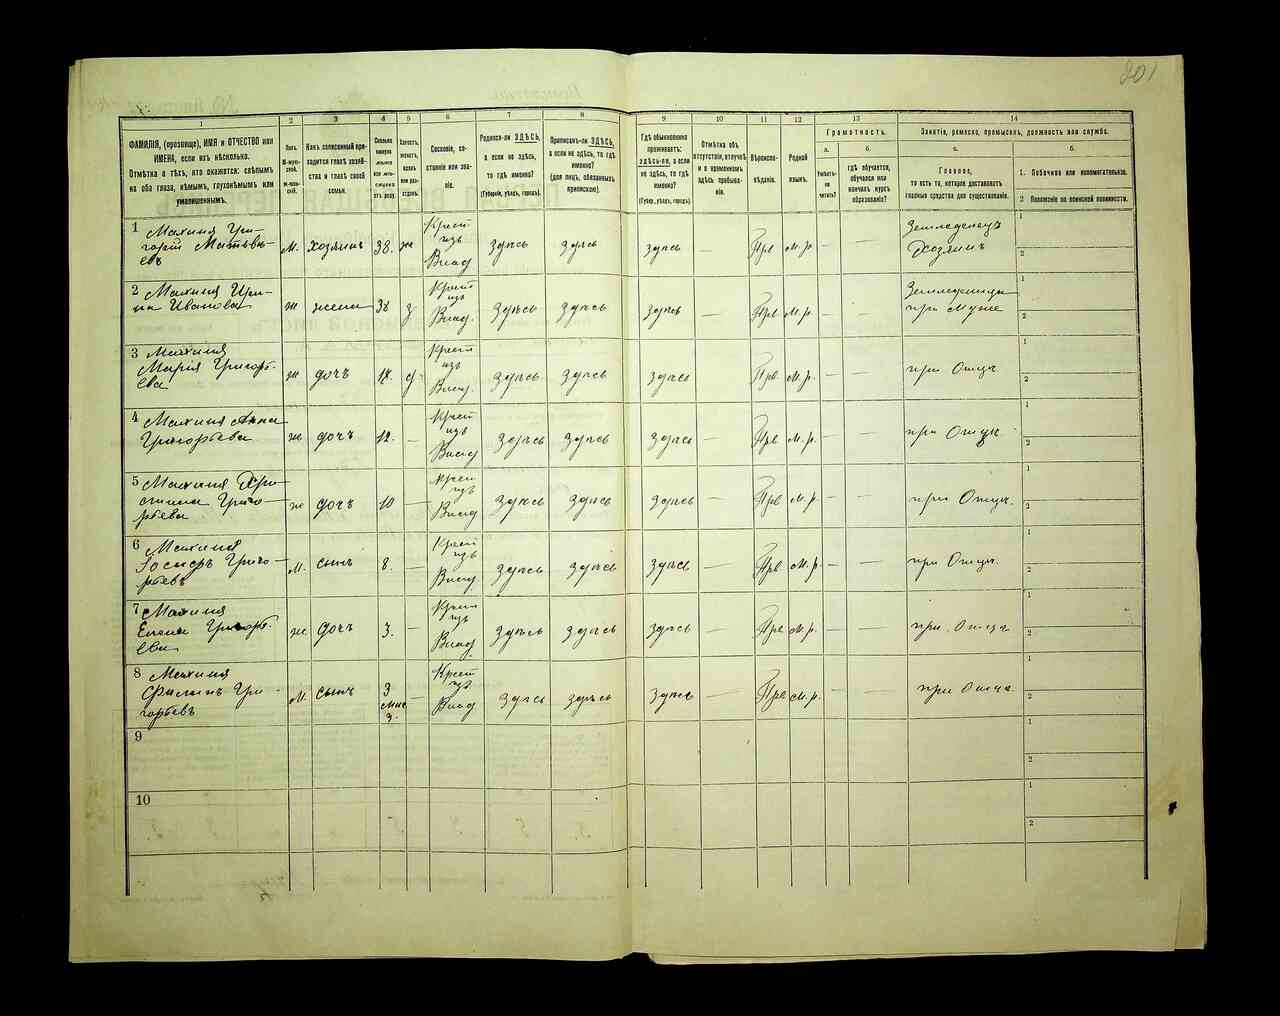 201
1
2
3
4
5
6
7
8
9
10
11
12
13
14
ФАМИЛІЯ, (прозвище), ИМЯ и ОТЧЕСТВО или
ИМЕНА, если ихъ нѣсколько.
Отмѣтка о тѣхъ, кто окажется: слѣпымъ
на оба глаза, нѣмымъ, глухонѣмымъ или
умалишеннымъ.
Полъ.
М-муж-
ской.
Ж-жен-
скій.
Какъ записанный при-
ходится главѣ хозяй-
ства и главѣ своей
семьи.
Сколько
минуло
лѣтъ
или мѣ-
сяцевъ
отъ роду.
Холостъ,
женатъ,
вдовъ
или раз-
веденъ.
Сословіе, со-
стояніе или зва-
ніе.
Родился-ли ЗДѢСЬ,
а если не здѣсь,
то гдѣ именно?
(Губернія, уѣздъ, городъ).
Приписанъ-ли ЗДѢСЬ,
а если не здѣсь, то гдѣ
именно?
(для лицъ, обязанныхъ
припиской).
Гдѣ обыкновенно
проживаетъ:
здѣсь-ли, а если
не здѣсь, то гдѣ
именно?
(Губер., уѣздъ, городъ).
Отмѣтка объ
отсутствіи, отлучкѣ
и о временномъ
здѣсь пребыва-
ніи.
Вѣроиспо-
вѣданіе.
Родной
языкъ.
Грамотность.
а.
Умѣетъ-
ли
читать?
б.
гдѣ обучается,
обучался или
кончилъ курсъ
образованія?
Занятіе, ремесло, промыселъ, должность или служба.
а.
Главное,
то есть то, которое доставляетъ
главныя средства для существованія.
б.
1. Побочное или вспомогательное.
2 Положеніе по воинской повинности.
1 Махиня Гри-
горій Матвѣ-
евъ М. хозяинъ 38. ж Крест изъ Влад здѣсь здѣсь здѣсь — Прв м.р. — — Земледѣлецъ Хозяинъ 1 2
2 Махиня Ири-
на Иванова ж жена 38 з Крест изъ Влад. здѣсь здѣсь здѣсь — Прв м.р. — — при мужѣ 1 2
3 Махиня
Марія Григорь-
ева ж дочь 17. д Крест изъ Влад. здѣсь здѣсь здѣсь — Прв м.р. — — при Отцѣ 1 2
4 Махиня Анна
Григорьева ж дочь 12. — Крест изъ Влад здѣсь здѣсь здѣсь — Прв м.р. — — при Отцѣ 1 2
5 Махиня Хри-
стина Григо-
рьева ж дочь 10 — Крест изъ Влад здѣсь здѣсь здѣсь — Прв м.р. — — при Отцѣ. 1 2
6 Махиня
Григо-
рьевъ М. сынъ 8. — Крест изъ Влад. здѣсь здѣсь здѣсь — Прв м.р. — — при Отцѣ. 1 2
7 Махиня
Елена Григорь-
ева ж дочь 3. — Крест изъ Влад. здѣсь здѣсь здѣсь — Прв м.р. — — при Отцѣ 1 2
8 Махиня
Филипъ Гри-
горьевъ М. сынъ — Крест изъ Влад здѣсь здѣсь здѣсь — Прв м.р. — — при Отцѣ 1 2
9 1 2
10 1 2